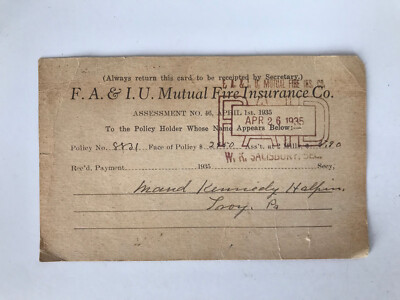 (Always return this card to be receipted by Secretary.)
F. A. & I. U. Mutual Fire Insurance Co.
ASSESSMENT NO. 46, APRIL 1st, 1935
To the Policy Holder Whose Name Appears Below:
Policy No. 8821 Face of Policy $ Ass't. at 2 Mills $
Rec'd. Payment 1935 Secy.
F. A. & I. U. MUTUAL FIRE INS. CO.
PAID
APR 26 1935
W. R. SALISBURY, SEC.
Maud Kennedy Halpin
Troy, Pa